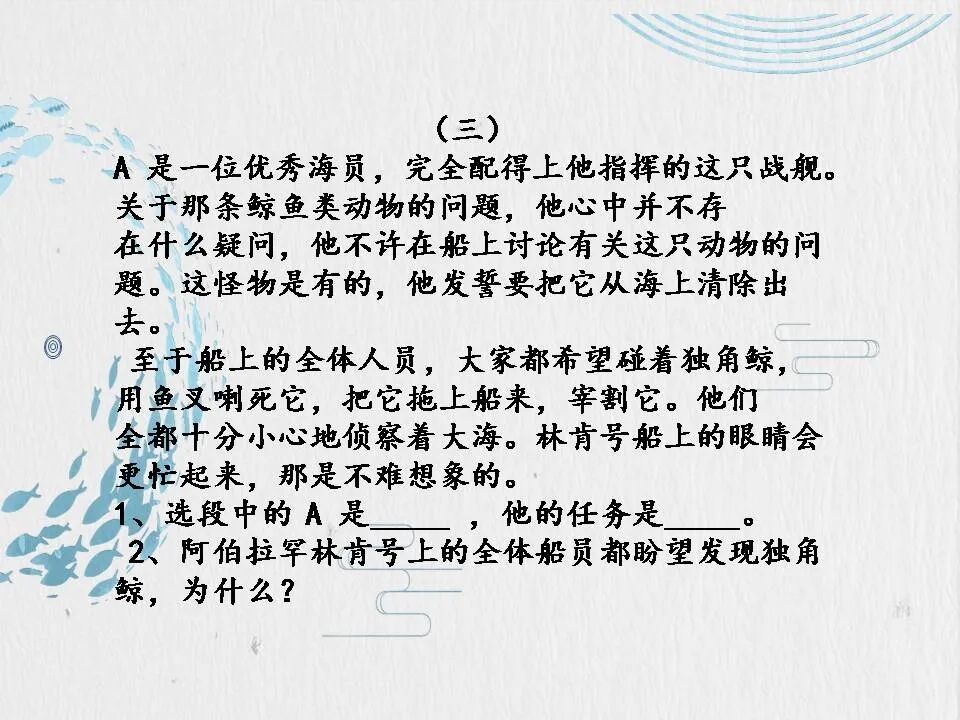 （三）
A 是一位优秀海员，完全配得上他指挥的这只战舰。
关于那条鲸鱼类动物的问题，他心中并不存
在什么疑问，他不许在船上讨论有关这只动物的问
题。这怪物是有的，他发誓要把它从海上清除出
去。
至于船上的全体人员，大家都希望碰着独角鲸，
用鱼叉喇死它，把它拖上船来，宰割它。他们
全都十分小心地侦察着大海。林肯号船上的眼睛会
更忙起来，那是不难想象的。
1、选段中的 A 是_____ ，他的任务是_____。
2、阿伯拉罕林肯号上的全体船员都盼望发现独角
鲸，为什么？